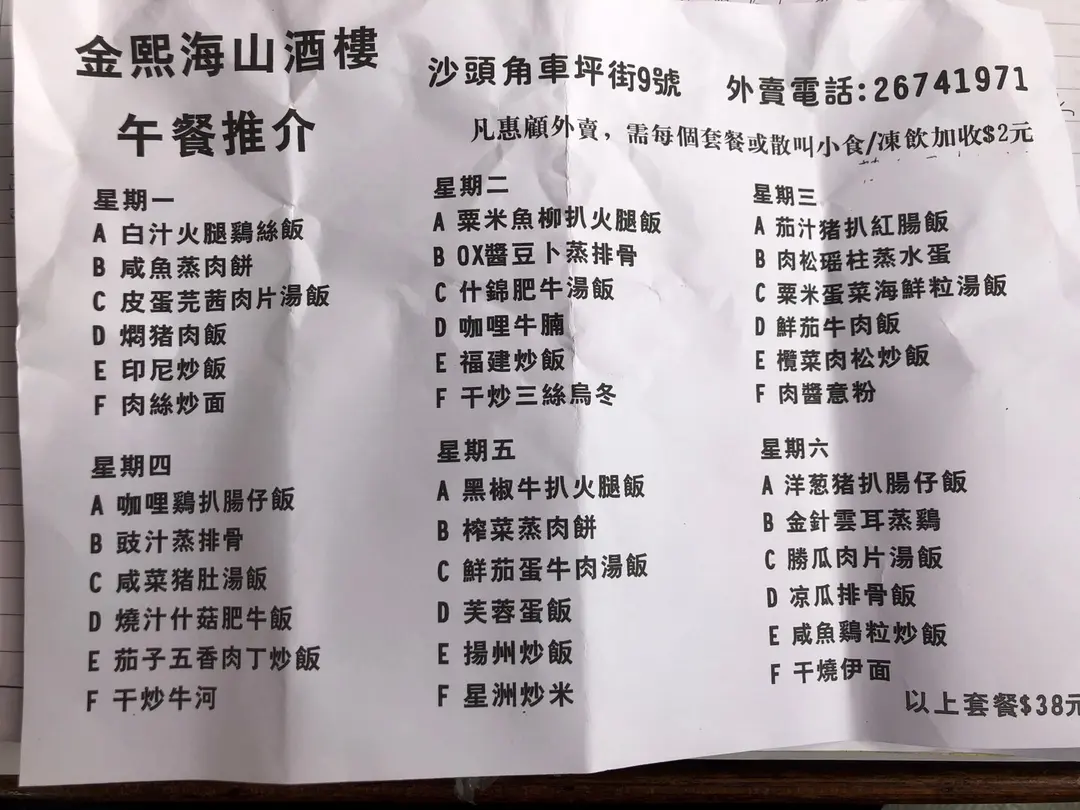 金熙海山酒樓
沙頭角車坪街9號
外賣電話:26741971
午餐推介
凡惠顧外賣，需每個套餐或散叫小食/凍飲加收$2元
星期一
A 白汁火腿鷄絲飯
B 咸魚蒸肉餅
C 皮蛋芫茜肉片湯飯
D 燜猪肉飯
E 印尼炒飯
F 肉絲炒面
星期二
A 粟米魚柳扒火腿飯
B OX醬豆卜蒸排骨
C 什錦肥牛湯飯
D 咖哩牛腩
E 福建炒飯
F 干炒三絲烏冬
星期三
A 茄汁猪扒紅腸飯
B 肉松瑶柱蒸水蛋
C 粟米蛋菜海鮮粒湯飯
D 鮮茄牛肉飯
E 欖菜肉松炒飯
F 肉醬意粉
星期四
A 咖哩鷄扒腸仔飯
B 豉汁蒸排骨
C 咸菜猪肚湯飯
D 燒汁什菇肥牛飯
E 茄子五香肉丁炒飯
F 干炒牛河
星期五
A 黑椒牛扒火腿飯
B 榨菜蒸肉餅
C 鮮茄蛋牛肉湯飯
D 芙蓉蛋飯
E 揚州炒飯
F 星洲炒米
星期六
A 洋葱猪扒腸仔飯
B 金針雲耳蒸鷄
C 勝瓜肉片湯飯
D 凉瓜排骨飯
E 咸魚鷄粒炒飯
F 干燒伊面
以上套餐$38元